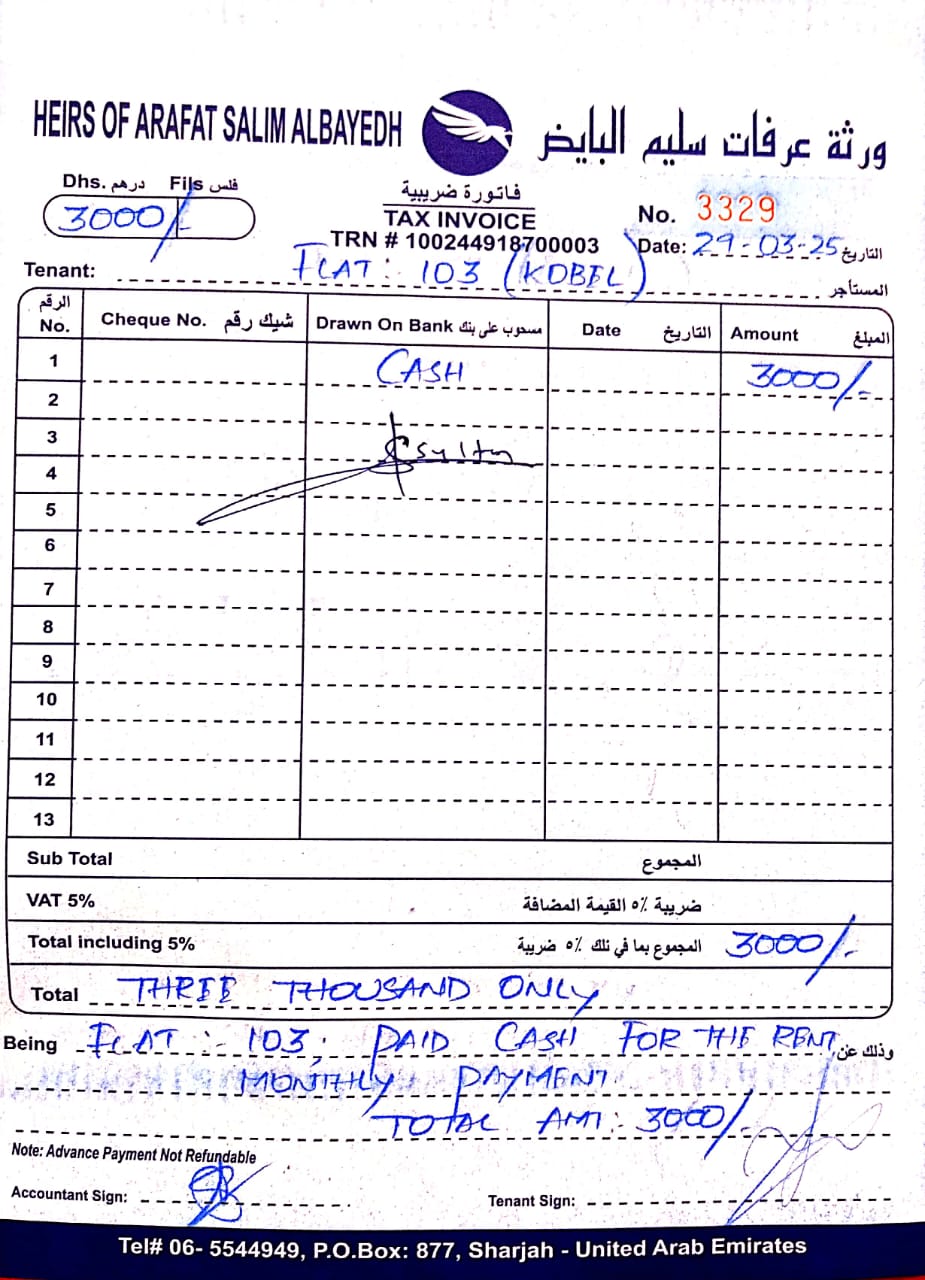 HEIRS OF ARAFAT SALIM ALBAYEDH ورثة عرفات سليم البايض
Dhs. درهم Fils فلس
3000/-
فاتورة ضريبية
TAX INVOICE
TRN # 100244918700003
No. 3329
Date: 29-03-25 التاريخ
Tenant: FLAT: 103 (KOBEL) المستأجر
الرقم No. Cheque No. شيك رقم Drawn On Bank مسحوب على بنك Date التاريخ Amount المبلغ
1 CASH 3000/-
2
3
4
5
6
7
8
9
10
11
12
13
Sub Total المجموع
VAT 5% ضريبة ٥٪ القيمة المضافة
Total including 5% المجموع بما في ذلك ٥٪ ضريبة 3000/-
Total THREE THOUSAND ONLY
Being FLAT: 103, PAID CASH FOR THE RENT وذلك عن
MONTHLY PAYMENT.
TOTAL AMT: 3000/-
Note: Advance Payment Not Refundable
Accountant Sign: Tenant Sign:
Tel# 06- 5544949, P.O.Box: 877, Sharjah - United Arab Emirates